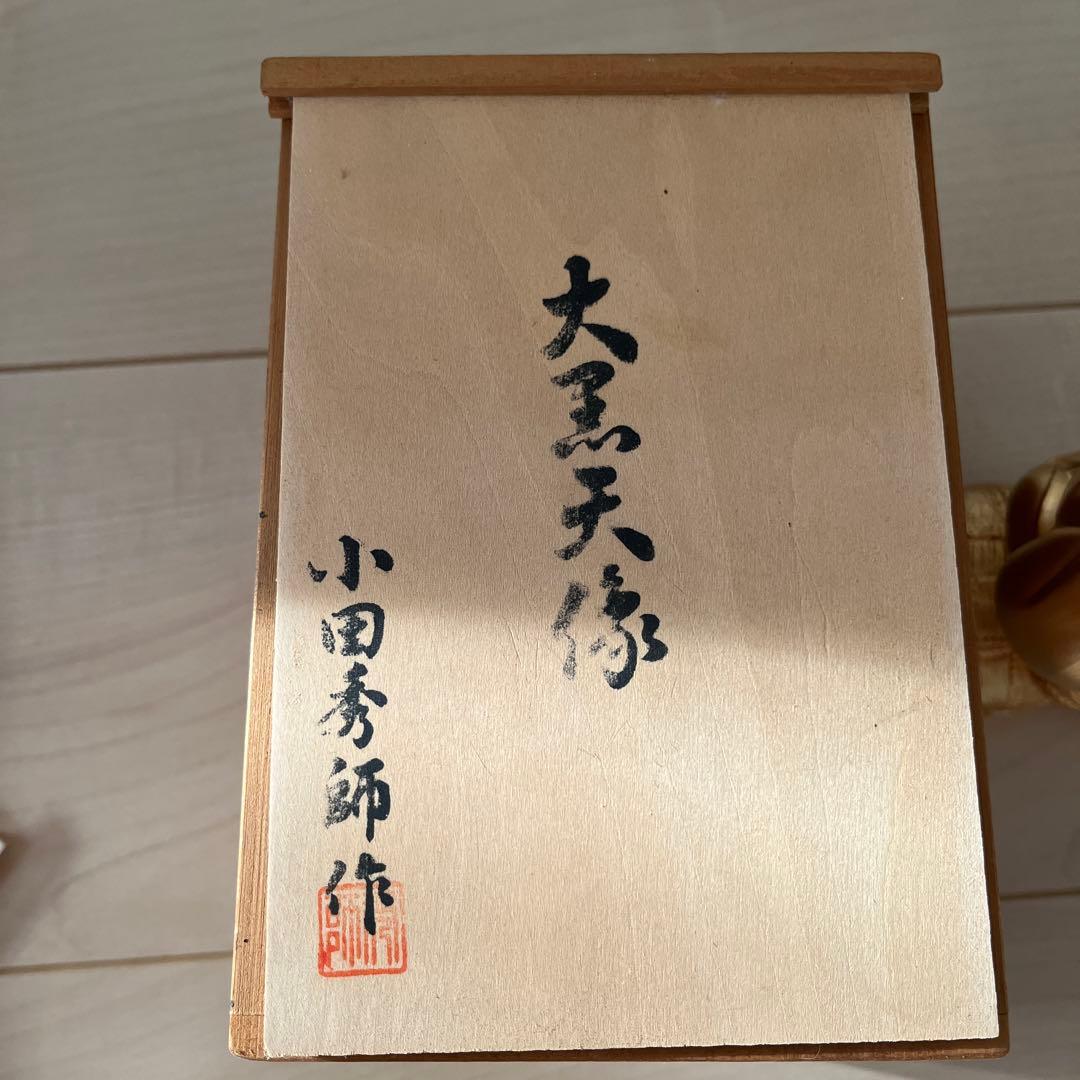 大黒天像
小田秀師作